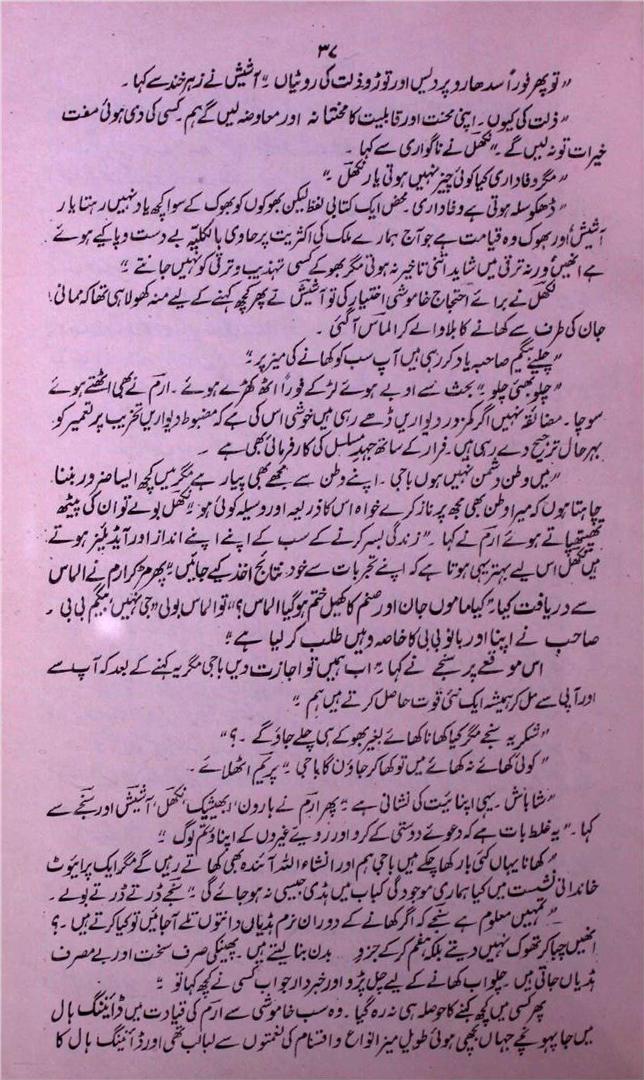 ۳۷
” تو پھر فوراً سدھارو پردیس اور توڑو ذلت کی روٹیاں “ آشیش نے زہر خند سے کہا ۔
” ذلت کی کیوں ۔ اپنی محنت اور قابلیت کا محنتانہ اور معاوضہ لیں گے ہم ۔ کسی کی دی ہوئی مفت
خیرات تو نہ لیں گے ۔“ نکھل نے ناگواری سے کہا ۔
” مگر وفاداری کیا کوئی چیز نہیں ہوتی یار نکھل ۔“
” ڈھکوسلہ ہوتی ہے وفاداری محض ایک کتابی لفظ لیکن بھوکوں کو بھوک کے سوا کچھ یاد نہیں رہتا یار
آشیش اور بھوک وہ قیامت ہے جو آج ہمارے ملک کی اکثریت پر حاوی بالکلیہ بے دست و پا کیے ہوئے
ہے انھیں ورنہ ترقی میں شاید اتنی تاخیر نہ ہوتی مگر بھوکے کسی تہذیب و ترقی کو نہیں جانتے “
نکھل نے برائے احتجاج خاموشی اختیار کی تو آشیش نے پھر کچھ کہنے کے لیے منہ کھولا ہی تھا کہ ممانی
جان کی طرف سے کھانے کا بلاوا لے کر الماس آگئی ۔
” چلیے بیگم صاحبہ یاد کر رہی ہیں آپ سب کو کھانے کی میز پر “
” چلو بھئی چلو “ بحث سے اوبے ہوئے لڑکے فوراً اٹھ کھڑے ہوئے ۔ ارم نے بھی اٹھتے ہوئے
سوچا ۔ مضائقہ نہیں اگر کمزور دیواریں ڈھے رہی ہیں خوشی اس کی ہے کہ مضبوط دیواریں تخریب پر تعمیر کو
بہرحال ترجیح دے رہی ہیں ۔ فرار کے ساتھ جہدِ مسلسل کی کارفرمائی بھی ہے ۔
” میں وطن دشمن نہیں ہوں باجی ۔ اپنے وطن سے مجھے بھی پیار ہے مگر میں کچھ ایسا ضرور بننا
چاہتا ہوں کہ میرا وطن بھی مجھ پر ناز کرے خواہ اس کا ذریعہ اور وسیلہ کوئی ہو “ نکھل بولے تو ان کی پیٹھ
تھپتھپاتے ہوئے ارم نے کہا ۔ ” زندگی بسر کرنے کے سب کے اپنے اپنے انداز اور آئیڈیلز ہوتے
ہیں نکھل اس لیے بہتر یہی ہوتا ہے کہ اپنے تجربات سے خود نتائج اخذ کیے جائیں “ پھر مڑ کر ارم نے الماس
سے دریافت کیا ۔ ” کیا ماموں جان اور صنم کا کھیل ختم ہو گیا الماس ؟“ تو الماس بولی ” جی نہیں، بیگم بی بی ۔
صاحب نے اپنا اور بانو بی بی کا خاصہ وہیں طلب کر لیا ہے “
اس موقعے پر سنجے نے کہا ” اب ہمیں تو اجازت دیں باجی مگر یہ کہنے کے بعد کہ آپ سے
اور آپی سے مل کر ہمیشہ ایک نئی قوت حاصل کرتے ہیں ہم “
” شکریہ سنجے مگر کیا کھانا کھائے بغیر بھوکے ہی چلے جاؤ گے ۔ ؟“
” کوئی کھائے نہ کھائے میں تو کھا کر جاؤں گا باجی “ پریم اٹھلائے ۔
” شاباش ۔ یہی اپنائیت کی نشانی ہے “ پھر ارم نے ہارون ، ابھیشیک ، نکھل ، آشیش اور سنجے سے
کہا ۔ ” یہ غلط بات ہے کہ دعوے دوستی کے کرو اور رویے غیروں کے اپناؤ تم لوگ “
” کھانا یہاں کئی بار کھا چکے ہیں باجی ہم اور انشاء اللہ آئندہ بھی کھاتے رہیں گے مگر ایک پرائیوٹ
خاندانی نشست میں کیا ہماری موجودگی کباب میں ہڈی جیسی نہ ہو جائے گی “ سنجے ڈرتے ڈرتے بولے ۔
” تمہیں معلوم ہے سنجے کہ اگر کھانے کے دوران نرم ہڈیاں دانتوں تلے آجائیں تو کیا کرتے ہیں ۔ ؟
انھیں چبا کر تھوک نہیں دیتے بلکہ ہضم کر کے جزو بدن بنا لیتے ہیں ۔ پھینکی صرف سخت اور بے مصرف
ہڈیاں جاتی ہیں ۔ چلو اب کھانے کے لیے چل پڑو اور خبردار جو اب کسی نے کچھ کہا تو “
پھر کسی میں کچھ کہنے کا حوصلہ ہی نہ رہ گیا ۔ وہ سب خاموشی سے ارم کی قیادت میں ڈائننگ ہال
میں جا پہونچے جہاں بچھی ہوئی طویل میز انواع و اقسام کی نعمتوں سے لبالب تھی اور ڈائننگ ہال کا